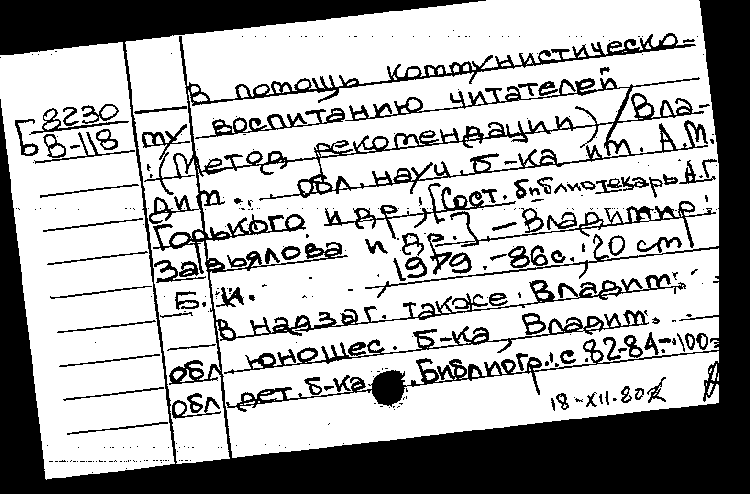 Б 8230
В-118
В помощь коммунистическо-
му воспитанию читателей
: (Метод. рекомендации) / Вла-
дим. обл. науч. б-ка им. А.М.
Горького и др.; [Сост. библиотекарь А.Г.
Завьялова и др.]. - Владимир:
Б. И., 1979. - 86с.; 20 cm
В надзаг. также: Владим.
обл. юношес. б-ка, Владим.
обл. дет. б-ка. Библиогр.: с. 82-84. 100
18-XII.80